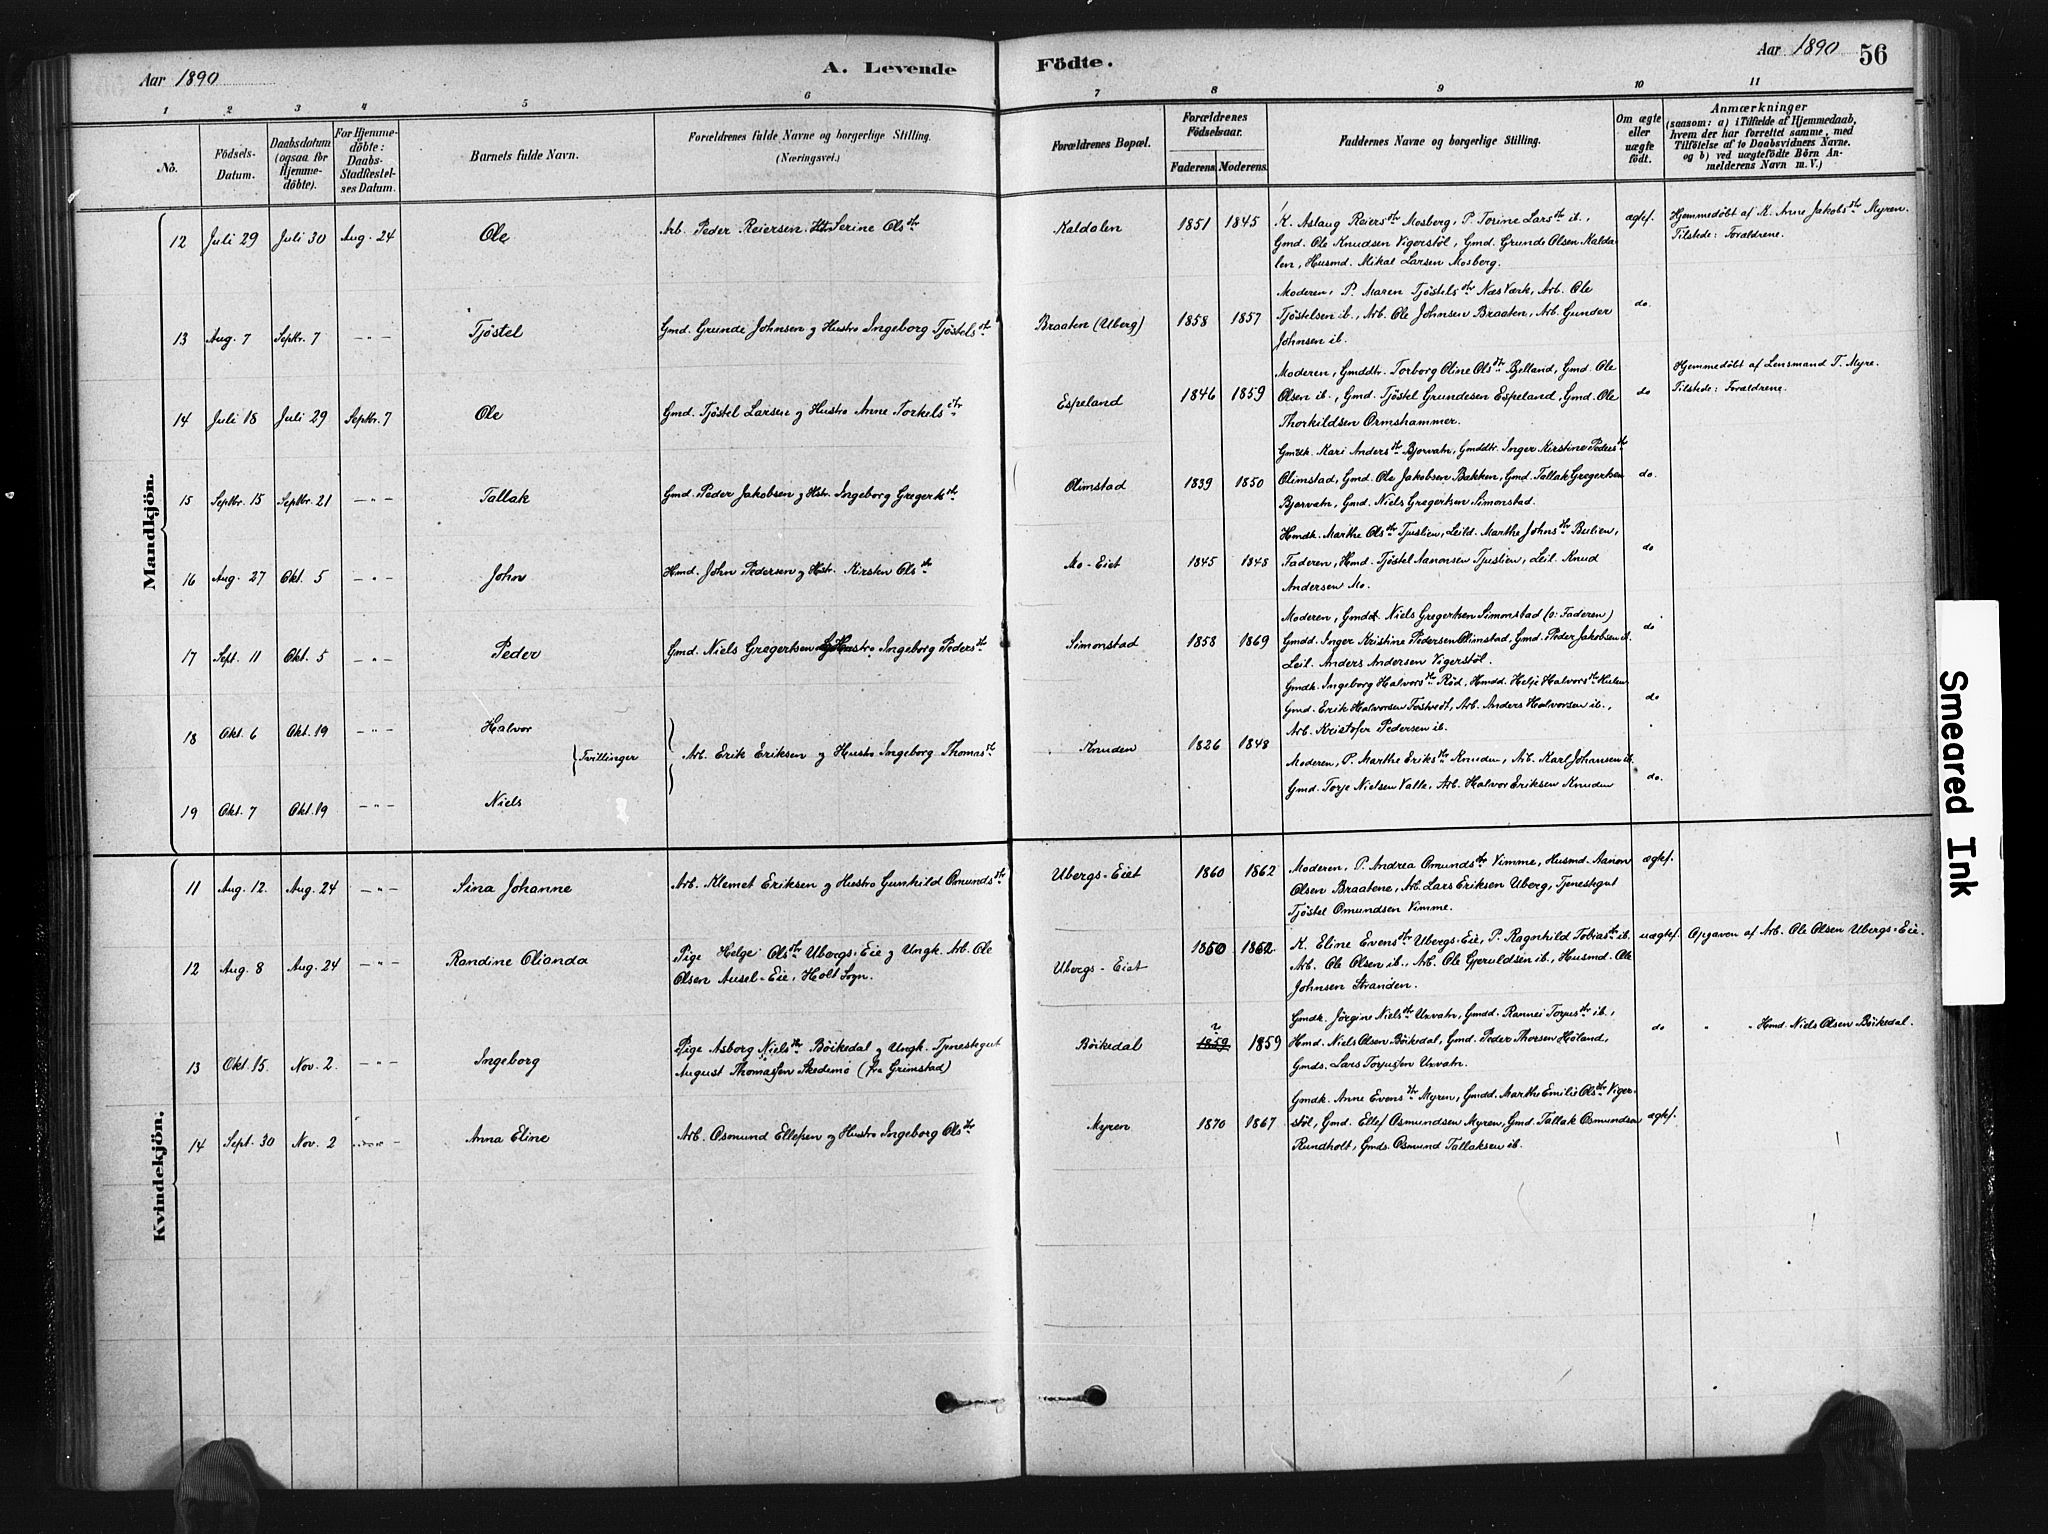 Aar 1890
A. Levende Födte.
Aar 1890 56
1 2 3 4 5 6 7 8 9 10 11
No.
Födsels-Datum.
Daabsdatum (ogsaa for Hjemmedöbte).
For Hjemmedöbte: Daabs-Stadfestelses Datum.
Barnets fulde Navn.
Forældrenes fulde Navne og borgerlige Stilling. (Næringsvei.)
Forældrenes Bopæl.
Forældrenes Födselsaar.
Faderens. Moderens.
Faddernes Navne og borgerlige Stilling.
Om ægte eller uægte födt.
Anmærkninger
(saasom: a) i Tilfælde af Hjemmedaab,
hvem der har forrettet samme, med
Tilföielse af to Daabsvidners Navne.
og b) ved uægtefödte Börn An-
melderens Navn m. V.)
Mandkjön.
12 Juli 29 Juli 30 Aug. 24 Ole Arb. Peder Reiersen Serine Olsdtr Kaldalen 1851 1845
K. Aslaug Reiersdtr Mosberg, P. Torine Larsdtr ib.,
Gmd. Ole Knudsen Vigerstöl, Gmd. Grunde Olsen Kalda-
len, Husmd. Mikal Larsen Mosberg.
ægtef.
Hjemmedöbt af K. Anne Jakobsdtr Myren.
Tilstede: Forældrene.
13 Aug. 7 Septbr. 7 —"— Tjöstel Gmd. Grunde Johnsen og Hustro Ingeborg Tjöstelsdtr Braaten (Uberg) 1858 1857
Moderen, P. Maren Tjöstelsdtr Næs Værk, Arb. Ole
Tjöstelsen ib., Arb. Ole Johnsen Braaten, Arb. Gunder
Johnsen ib.
do.
14 Juli 18 Juli 29 Septbr. 7 Ole Gmd. Tjöstel Larsen og Hustro Anne Torkelsdtr Espeland 1846 1859
Moderen, Gmddtr. Torborg Oline Olsdtr Bjelland, Gmd. Ole
Olsen ib., Gmd. Tjöstel Grundesen Espeland, Gmd. Ole
Thorkildsen Ormshammer.
do
Hjemmedöbt af Lensmand T. Myre.
Tilstede: Forældrene.
15 Septbr. 15 Septbr. 21 —"— Tallak Gmd. Peder Jakobsen og Hstr. Ingeborg Gregertsdtr Olimstad 1839 1850
Gmdk. Kari Andersdtr Bjorvatn, Gmddtr. Inger Kirstine Pedersdtr
Olimstad, Gmd. Ole Jakobsen Bakken, Gmd. Tallak Gregertsen
Bjorvatn, Gmd. Niels Gregertsen Simonstad.
do.
16 Aug. 27 Okt. 5 —"— John Hmd. John Pedersen og Hstr. Kirsten Olsdtr Mo-Eiet 1845 1848
Hmdk. Marthe Olsdtr Tjuslien, Leild. Marthe Johnsdtr Bulien,
Faderen, Hmd. Tjöstel Aanonsen Tjuslien, Leil. Knud
Andersen Mo.
do
17 Sept. 11 Okt. 5 —"— Peder Gmd. Niels Gregertsen og Hustro Ingeborg Pedersdtr Simonstad 1858 1869
Moderen, Gmd. Niels Gregertsen Simonstad (ɔ: Faderen)
Gmdd. Inger Kristine Pedersen Olimstad, Gmd. Peder Jakobsen ib.
Leil. Anders Andersen Vigerstöl.
do
18 Okt. 6 Okt. 19 —"— Halvor
{Tvillinger} Arb. Erik Eriksen og Hustro Ingeborg Thomasdtr Knuden 1826 1848
Gmdk. Ingeborg Halvorsdtr Röd, Hmdd. Helje Halvorsdtr
Gmd. Erik Halvorsen Tostvedt, Arb. Anders Halvorsen ib.,
Arb. Kristofer Pedersen ib.
do
19 Okt. 7 Okt. 19 —"— Niels
Moderen, P. Marthe Eriksdtr Knuden, Arb. Karl Johansen ib.
Gmd. Torje Nielsen Valle, Arb. Halvor Eriksen Knuden
do.
Kvindekjön.
11 Aug. 12. Aug. 24 —"— Sina Johanne Arb. Klemet Eriksen og Hustro Gunhild Omundsdtr Ubergs-Eiet 1860 1862
Moderen, P. Andrea Omundsdtr Vimme, Husmd. Aanon
Olsen Braatene, Arb. Lars Eriksen Uberg, Tjenestegut
Tjöstel Omundsen Vimme.
ægtef.
12 Aug. 8 Aug. 24 —"— Randine Olianda Pige Helge Olsdtr Ubergs-Eie og Ungk. Arb. Ole
Olsen Ausel-Eie, Holt Sogn. Ubergs-Eiet 1850 1862
K. Eline Evensdtr Ubergs-Eie, P. Ragnhild Tobiasdtr ib.
Arb. Ole Olsen ib., Arb. Ole Gjeruldsen ib., Husmd. Ole
Johnsen Stranden.
uægtef.
Opgaven af Arb. Ole Olsen Ubergs-Eie.
13 Okt. 15. Nov. 2. —"— Ingeborg Pige Asborg Nielsdtr Böikedal og Ungk. Tjenestegut
August Thomassen Skedsmo (fra Grimstad) Böikedal ? 1859 1859
Gmdk. Jörgine Nielsdtr Uxvatn, Gmdd. Rannei Torjusdtr ib.,
Hmd. Niels Olsen Böikedal, Gmd. Peder Thorsen Höland,
Gmds. Lars Torjussen Uxvatn.
do
" " Hmd. Niels Olsen Böikedal.
14 Sept. 30 Nov. 2 —"— Anna Eline Arb. Osmund Ellefsen og Hustro Ingeborg Olsdtr Myren 1870 1867
Gmdk. Anne Evensdtr Myren, Gmdd. Marthe Emilie Olsdtr Viger-
stöl, Gmd. Ellef Osmundsen Myren, Gmd. Tallak Osmundsen
Rundholt, Gmds. Osmund Tallaksen ib.
ægtef.
Smeared Ink